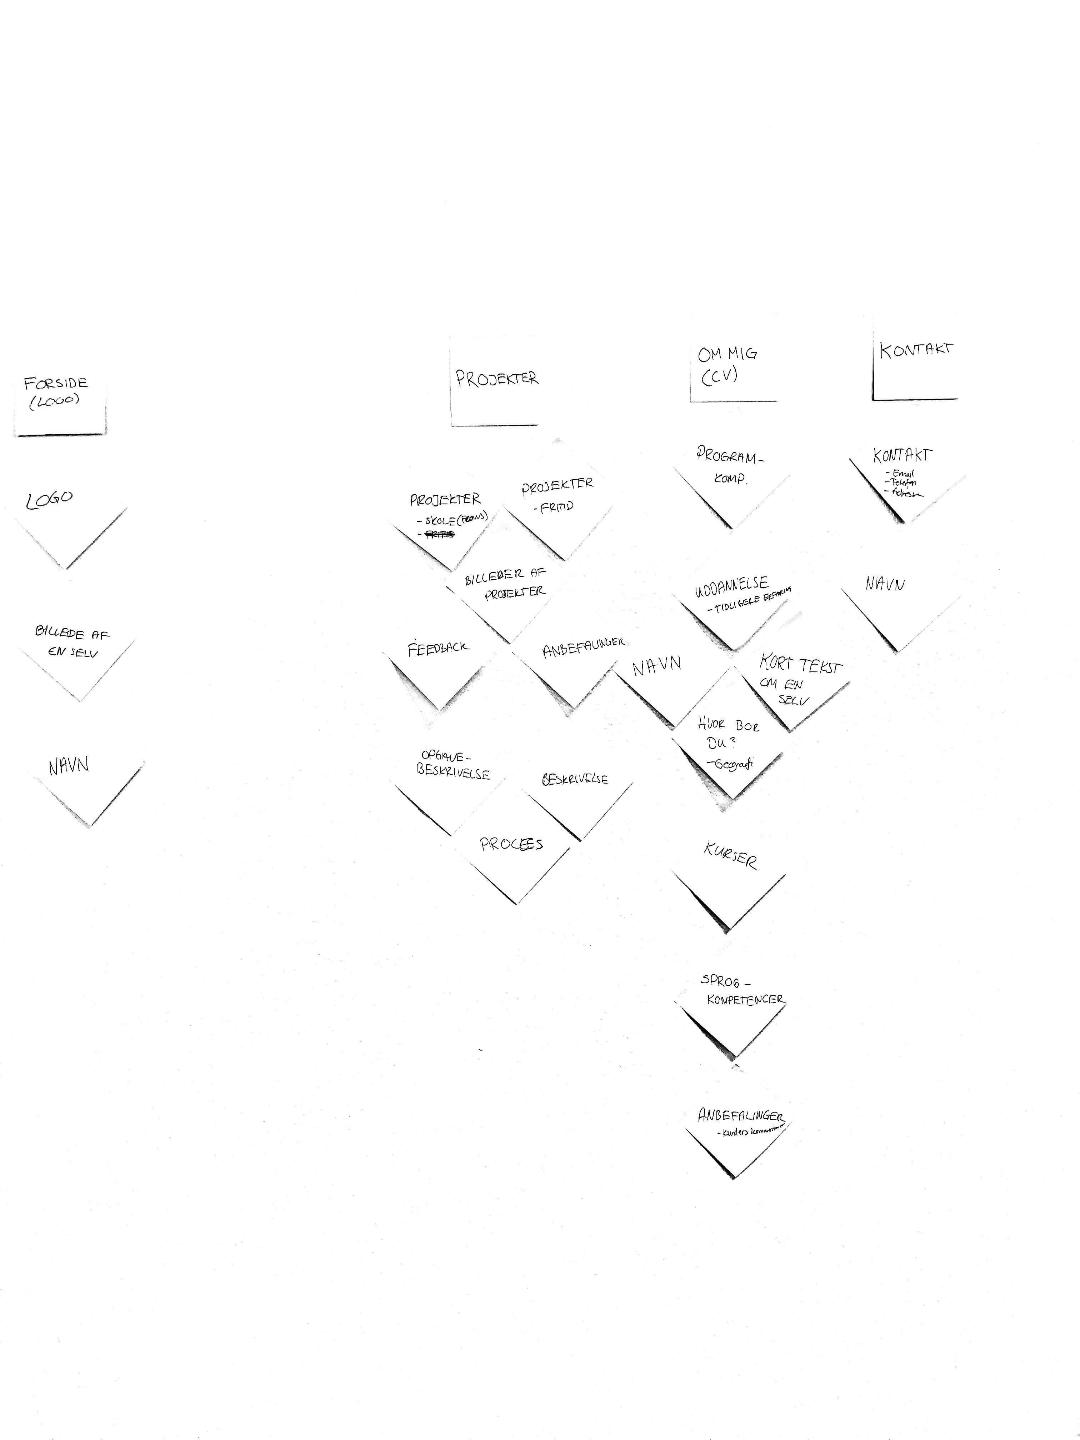 FORSIDE
(LOGO)
LOGO
BILLEDE AF
EN SELV
NAVN
PROJEKTER
PROJEKTER
- SKOLE
PROJEKTER
- FRITID
BILLEDER AF
PROJEKTER
FEEDBACK
ANBEFALINGER
OPGAVE-
BESKRIVELSE
BESKRIVELSE
PROCES
OM MIG
(CV)
PROGRAM-
KOMP.
UDDANNELSE
- TIDLIGERE
NAVN
KORT TEKST
OM EN
SELV
HVOR BOR
DU?
- Geografi
KURSER
SPROG-
KOMPETENCER
ANBEFALINGER
KONTAKT
KONTAKT
- Email
- Telefon
- Adresse
NAVN